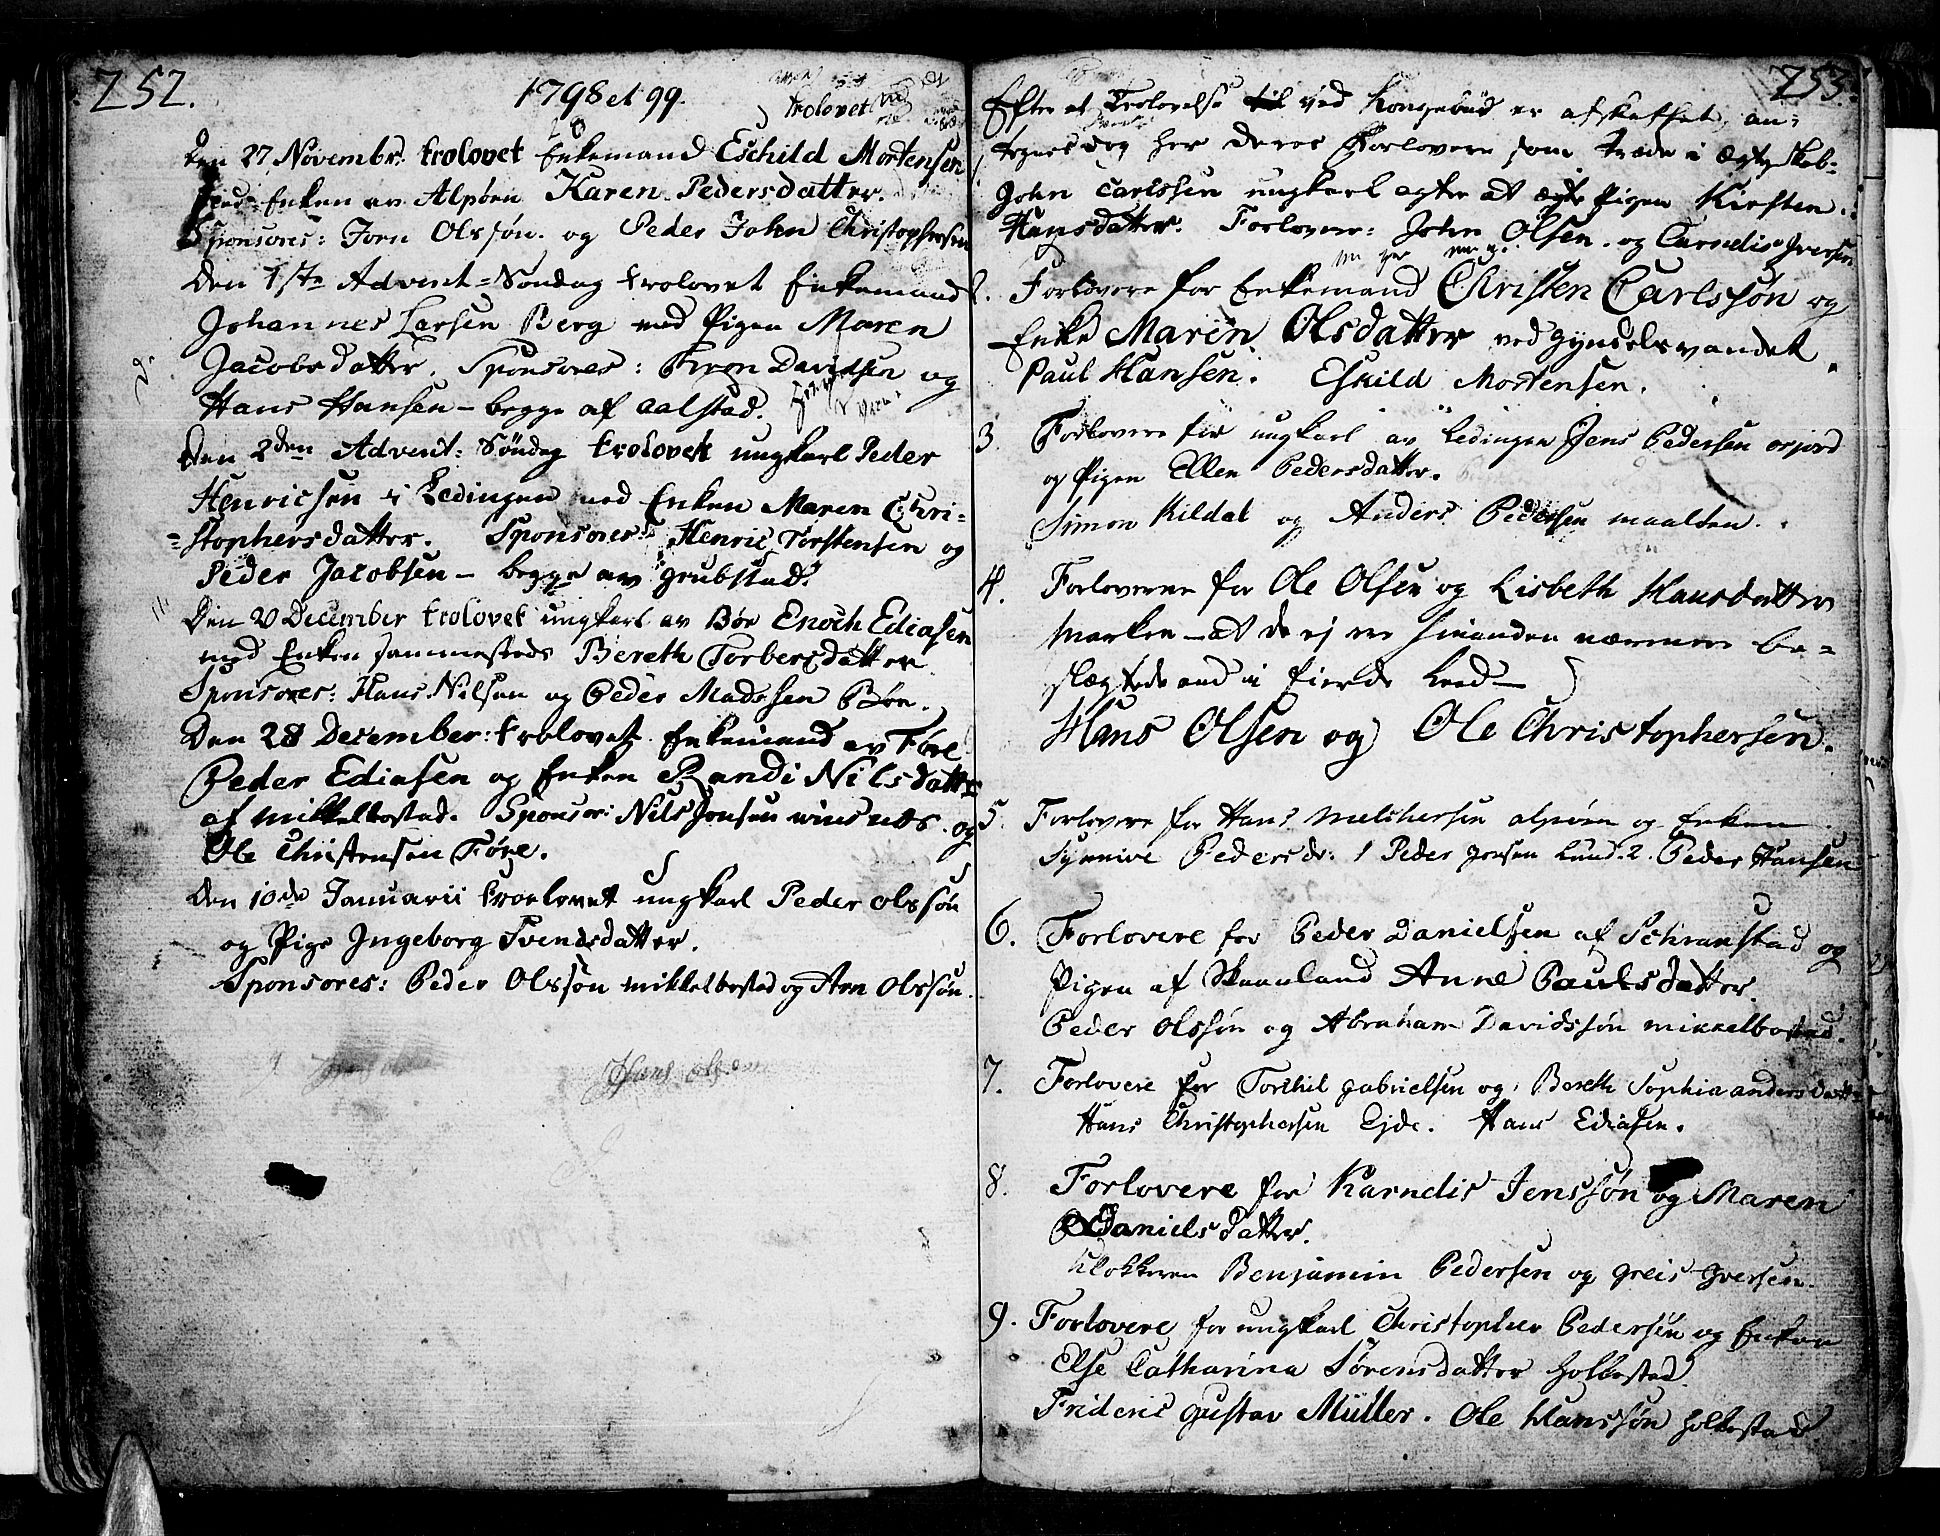 252.
1798 et 99.
trolovet
Den 27 Novembr. trolovet Enkemand Eschild Mortensen
med Enken av Alpøen Karen Pedersdatter.
Sponsores: Jorn Olssøn. og Peder John Christophersen
Den 1ste Advent=Søndag trolovet Enkemand
Johannes Larsen Berg med Pigen Maren
Jacobsdatter. Sponsores: Davidsen og
Hans Hansen – begge af Aalstad.
Den 2den Advent: Søndag trolovet ungkarl Peder
Henricsen i Ledingen med Enken Maren Chri-
=stophersdatter. Sponsores: Henric Torstensen og
Peder Jacobsen – begge av Grubstad.
Den 20 December trolovet ungkarl av Bøe Enoch Ediasen
med Enken sammesteds Bereth Torbersdatter
Sponsores: Hans Nilsen og Peder Madssen Bøe.
Den 28 December: trolovet Enkemand av Føre
Peder Ediasen og Enken Randi Nilsdatter
af Mikkelbostad. Sponsor: Nils Jonsen og
Ole Christensen Føre.
Den 10de Januarii troelovet ungkarl Peder Olssøn
og Pige Ingeborg Svendsdatter.
Sponsores: Peder Olssøn mikkelbostad og Arn Olssøn.
Hans olsen
253.
Efter at Trolovelse ved Kongebud er afskaffet, an-
tegnes dog her deres Forlovere som træde i Ægteskab-
John Carlssen ungkarl agter at ægte Pigen Kirsten
Hansdatter. Forlovere: John Olsen. og Carnelis Iversen
2. Forlovere for Enkemand Christen Carlssøn og
Enke Maren Olsdatter ved Gyndelsvandet
Paul Hansen. Eskild Mortensen.
3 Forlovere for ungkarl av Ledingen Jens Pedersen
og Pigen Ellen Pedersdatter.
Simon Kildal og Anders Pedersen maalten.
4. Forlovere for Ole Olsen og Lisbeth Hansdatter
Marken – at de ej ere hinanden nærmere be-
slægtede end i fierde Leed –
Hans Olsen og Ole Christophersen.
5. Forlovere for Hans Melchersen alpøen og Enken
Synnive Pedersdr: 1 Peder Jonsen Lund. 2. Peder Hansen
6. Forlovere for Peder Danielsen af Schranstad og
Pigen af Skaanland Anne Paulsdatter.
Peder Olssøn og Abraham Davidssøn mikkelbostad.
7. Forlovere for Torkhil Gabrielsen og Bereth Sophia andersdatter
Hans Christophersen Ejde. Hans Ediasen.
8. Forlovere for Karnelis Jenssøn og Maren
Danielsdatter.
Klokkeren Benjamin Pedersen og Greis Iversen.
9. Forlovere for ungkarl Christopher Pedersen og Enken
Else Catharina Sørensdatter holkestad.
Frideric Gustav Müller. Ole Hanssøn holkestad